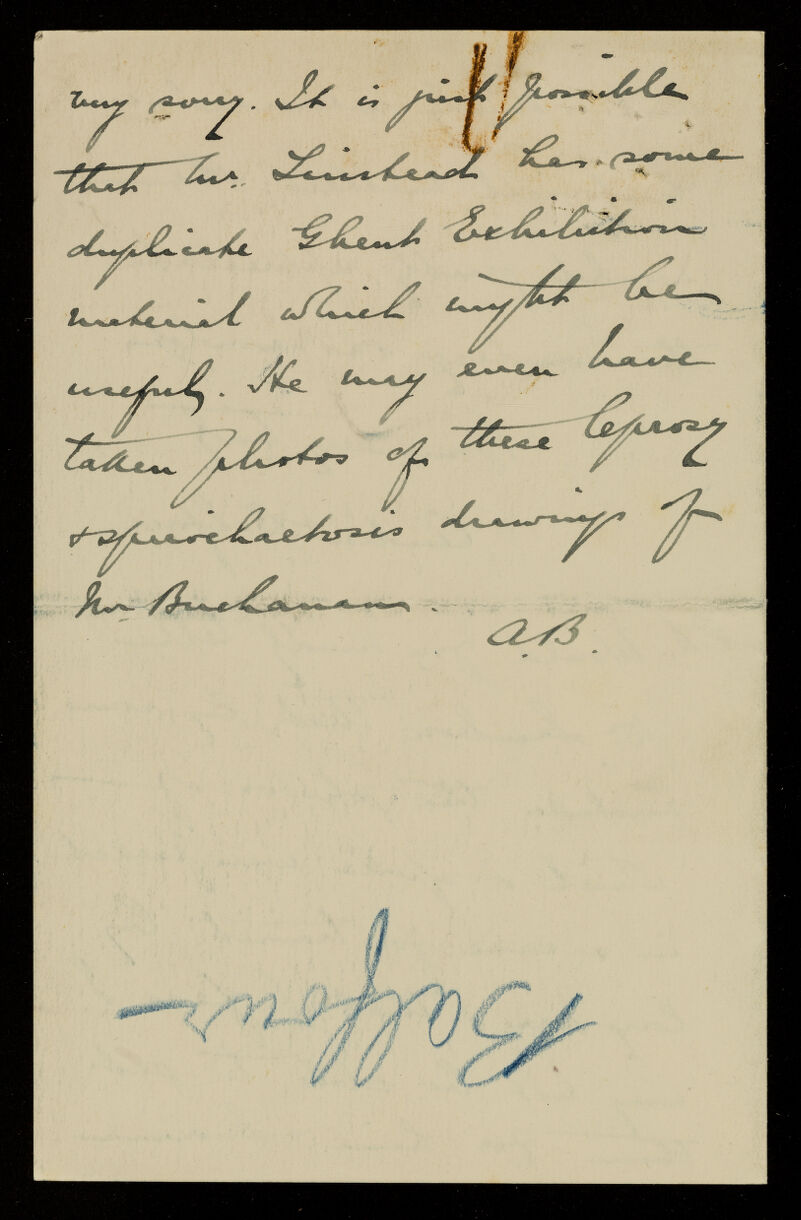 very sorry. It is just possible
that Mr. Linstead has some
duplicate Ghent Exhibition
material which might be
useful. He may even have
taken photos of these leprosy
& spirochaetosis drawings of
Mr Buchanans.
A.B.
Balfour